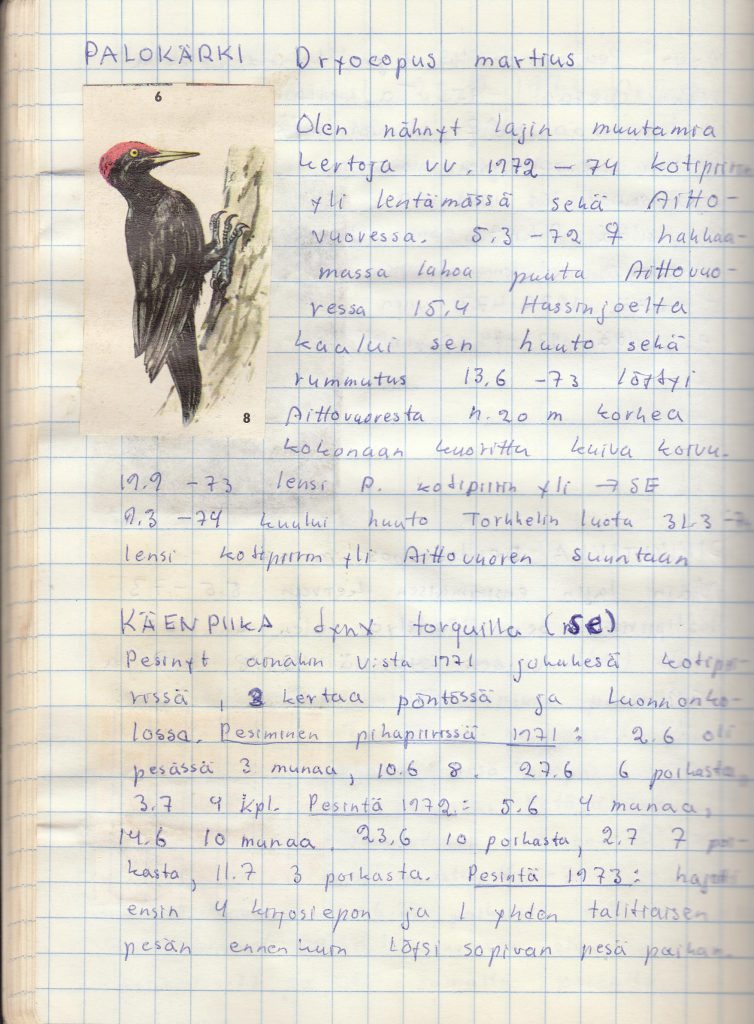 PALOKÄRKI Dryocopus martius
6
Olen nähnyt lajin muutamia
kertoja vv. 1972 – 74 kotipiirin
yli lentämässä sekä Aitto-
vuoressa. 5.3 -72 ♀ hakkaa-
massa lahoa puuta Aittovuo-
ressa 15.4 Hassinjoelta
kaului sen huuto sekä
rummutus 13.6 -73 löytyi
8
Aittovuoresta n. 20 m korkea
kokonaan kuorittu kuiva koivu.
19.9 -73 lensi P. kotipiirin yli → SE
9.3 -74 kuului huuto Torkhelin luota 31.3
lensi kotipiirin yli Aittovuoren suuntaan
KÄENPIIKA Jynx torquilla (se)
Pesinyt ainakin v:sta 1971 jokakesä kotipi-
rissä, 3 kertaa pöntössä ja luonnonko-
lossa. Pesiminen pihapiirissä 1971: 2.6 oli
pesässä 3 munaa, 10.6 8. 27.6 6 poikasta,
3.7 4 kpl. Pesintä 1972: 5.6 4 munaa,
14.6 10 munaa. 23.6 10 poikasta, 2.7 7 poi-
kasta, 11.7 3 poikasta. Pesintä 1973: hajoti
ensin 4 kirjosiepon ja 1 yhden talitiaisen
pesän ennenkuin löysi sopivan pesä paikan.